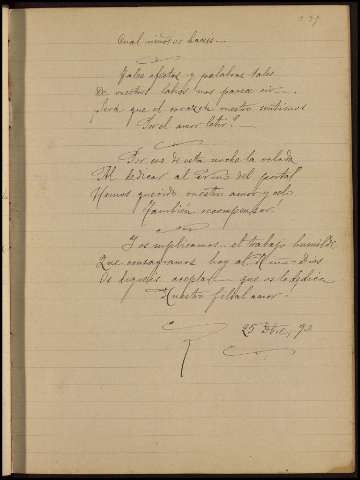 Cual niños os haces...
Tales afectos y palabras tales
De vuestros labios nos parece oir
Será que el corazón nuestro sentimos
Por el amor latir!
Por eso de esta noche la velada
Al dedicar al Niño del portal
Hemos querido vuestro amor y celo
También recompensar!
Y os suplicamos el trabajo humilde
Que consagramos hoy al Niño-Dios
Os digneis aceptar que os lo dedica
Nuestro filial amor.
25 Dbre, 92